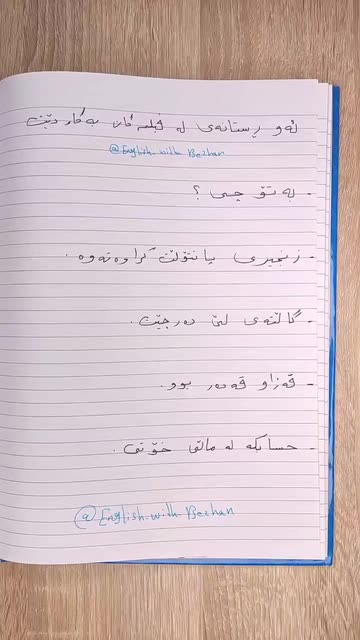 ئەو ڕستانەی لە فیلمەکان بەکار دێت
@English_with_Bezhan
- بە تۆ چی؟
- زنجیری پانتۆڵت کراوەتەوە.
- گاڵتەی لێ دەرچێت.
- قەزاو قەدەر بوو.
- حسابکە لە ماڵی خۆتی.
@English_with_Bezhan